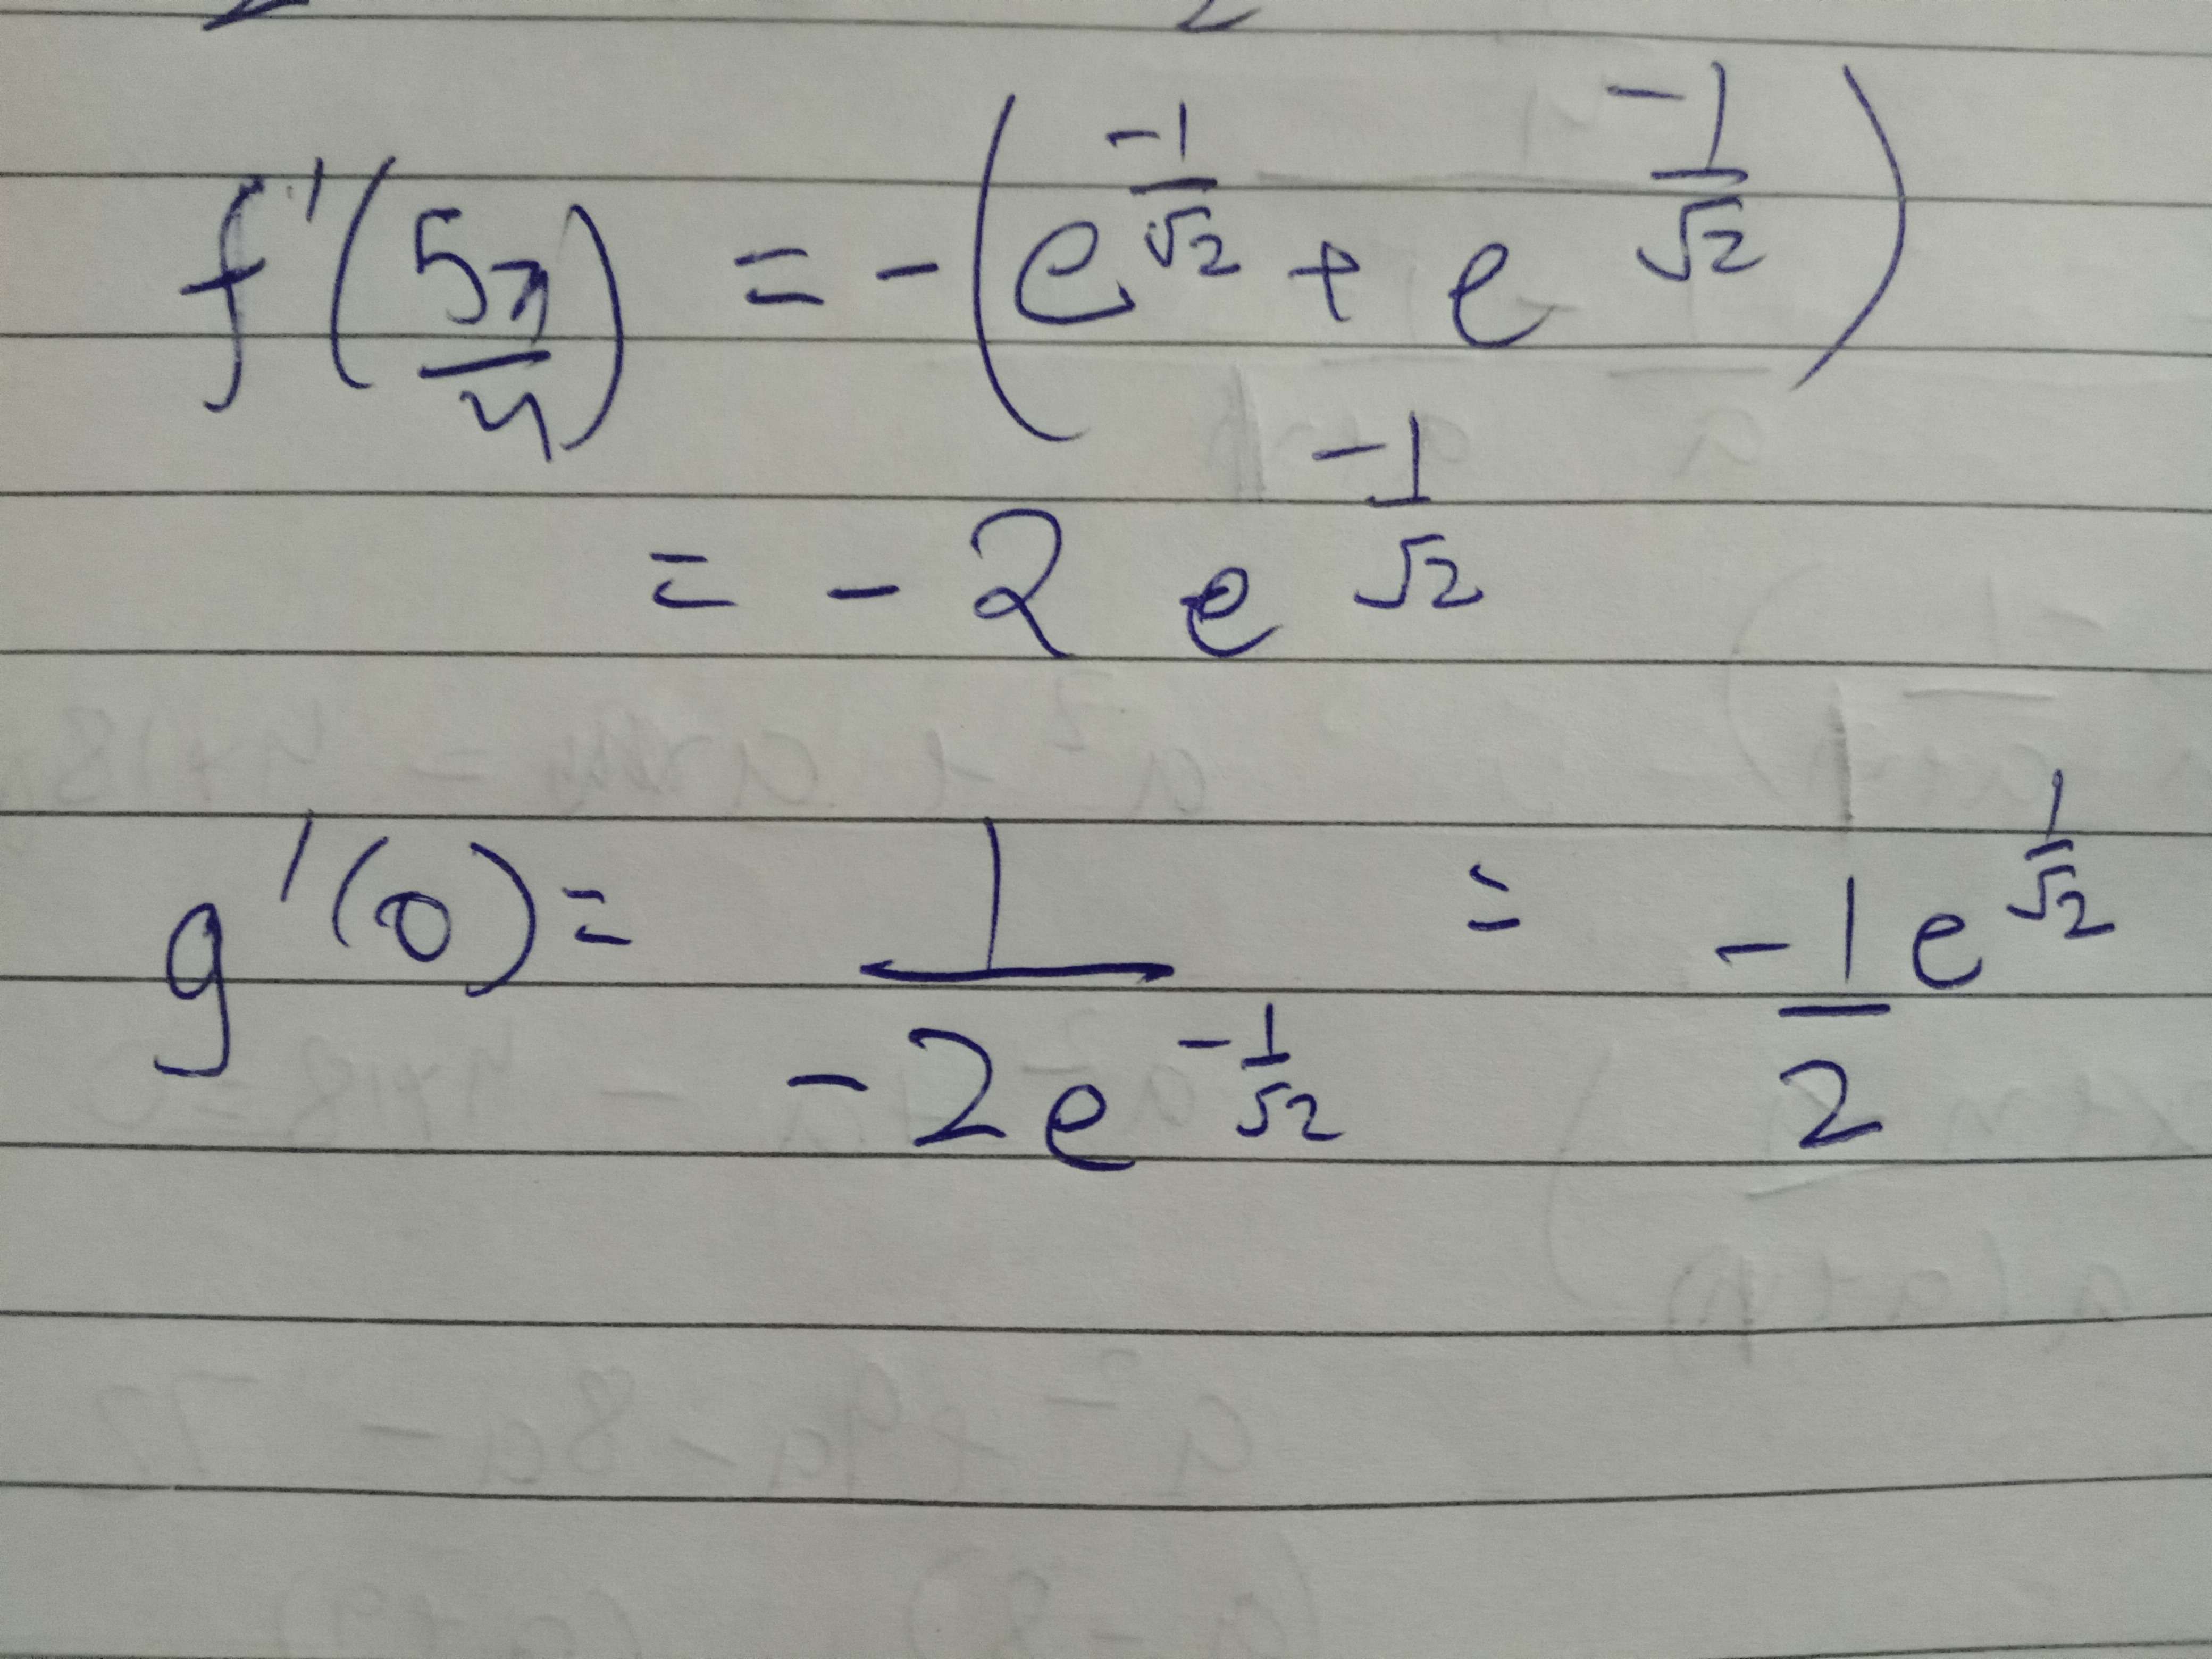 f'(5π/4) = -(e^(-1/√2) + e^(-1/√2))
= -2 e^(-1/√2)
g'(0) = 1/(-2e^(-1/√2)) = -1/2 e^(1/√2)